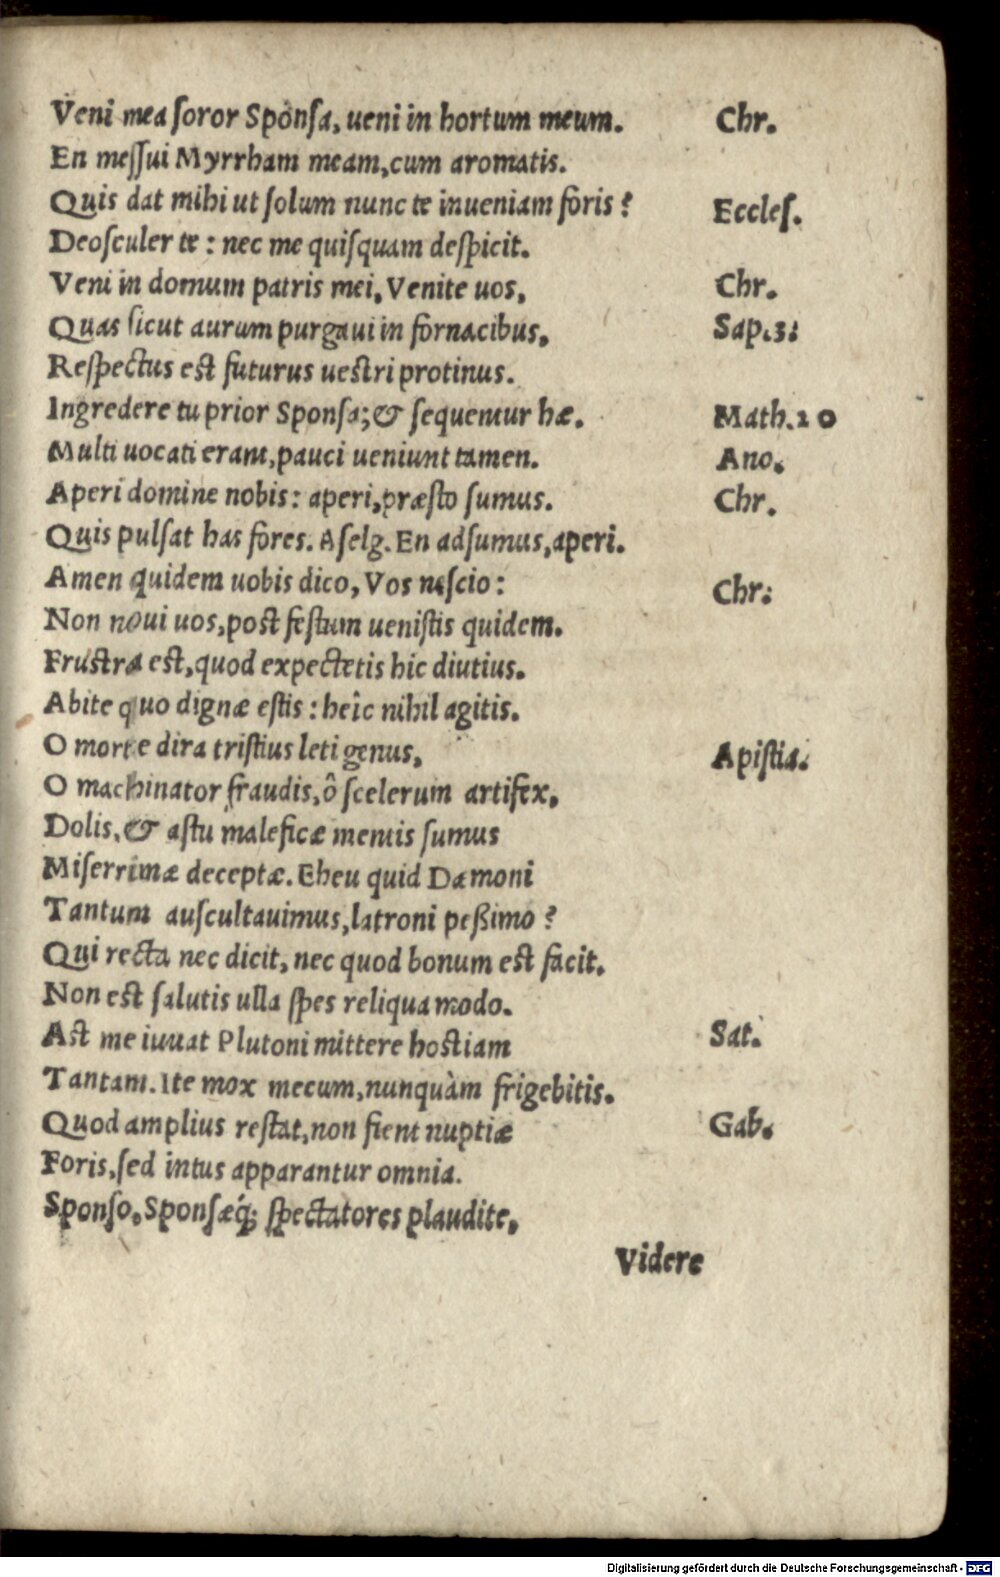 Veni mea ſoror Sponſa, ueni in hortum meum. Chr.
En meſſui Myrrham meam, cum aromatis.
Quis dat mihi ut ſolum nunc te inueniam foris? Eccleſ.
Deoſculer te: nec me quiſquam deſpicit.
Veni in domum patris mei, Venite uos, Chr.
Quas ſicut aurum purgaui in fornacibus, Sap.3:
Reſpectus est futurus ueſtri protinus.
Ingredere tu prior Sponſa; & ſequentur hæ. Math.20
Multi uocati erant, pauci ueniunt tamen. Ano.
Aperi domine nobis: aperi, præſto ſumus. Chr.
Quis pulſat has fores. Aſelg. En adſumus, aperi.
Amen quidem uobis dico, Vos neſcio: Chr:
Non noui uos, post feſtum ueniſtis quidem.
Fruſtra est, quod expectetis hic diutius.
Abite quo dignæ eſtis: heîc nihil agitis.
O morte dira triſtius leti genus, Apiſtia.
O machinator fraudis, ô ſcelerum artifex,
Dolis, & aſtu maleficæ mentis ſumus
Miſerrimæ deceptæ. Eheu quid Dæmoni
Tantum auſcultauimus, latroni peßimo?
Qui recta nec dicit, nec quod bonum est facit.
Non est ſalutis ulla ſpes reliqua modo.
Ast me iuuat Plutoni mittere hostiam Sat.
Tantam. Ite mox mecum, nunquàm frigebitis.
Quod amplius reſtat, non fient nuptiæ Gab.
Foris, ſed intus apparantur omnia.
Sponſo, Sponſæq́; ſpectatores plaudite,
Videre
Digitalisierung gefördert durch die Deutsche Forschungsgemeinschaft - DFG